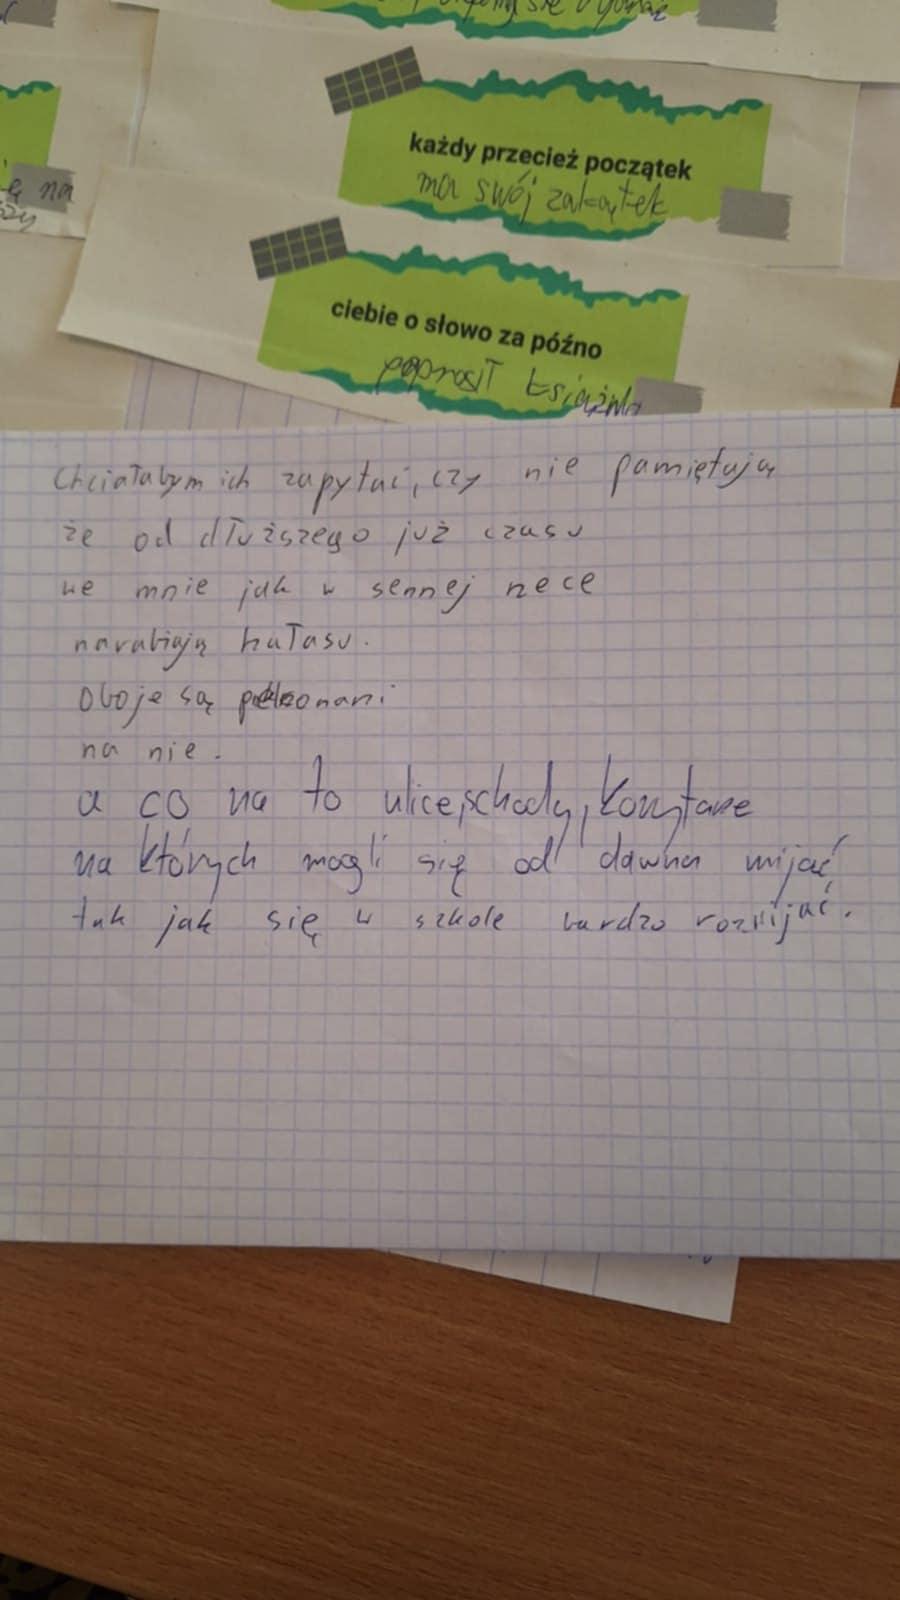 ę na
każdy przecież początek
ma swój zakątek
ciebie o słowo za późno
poprosił
Chciałabym ich zapytać, czy nie pamiętają
że od dłuższego już czasu
we mnie jak w sennej rzece
narabiają hałasu.
Oboje są
na nie.
a co na to ulice, schody, korytarze
na których mogli się od dawna mijać
tak jak się w szkole bardzo rozwijać.